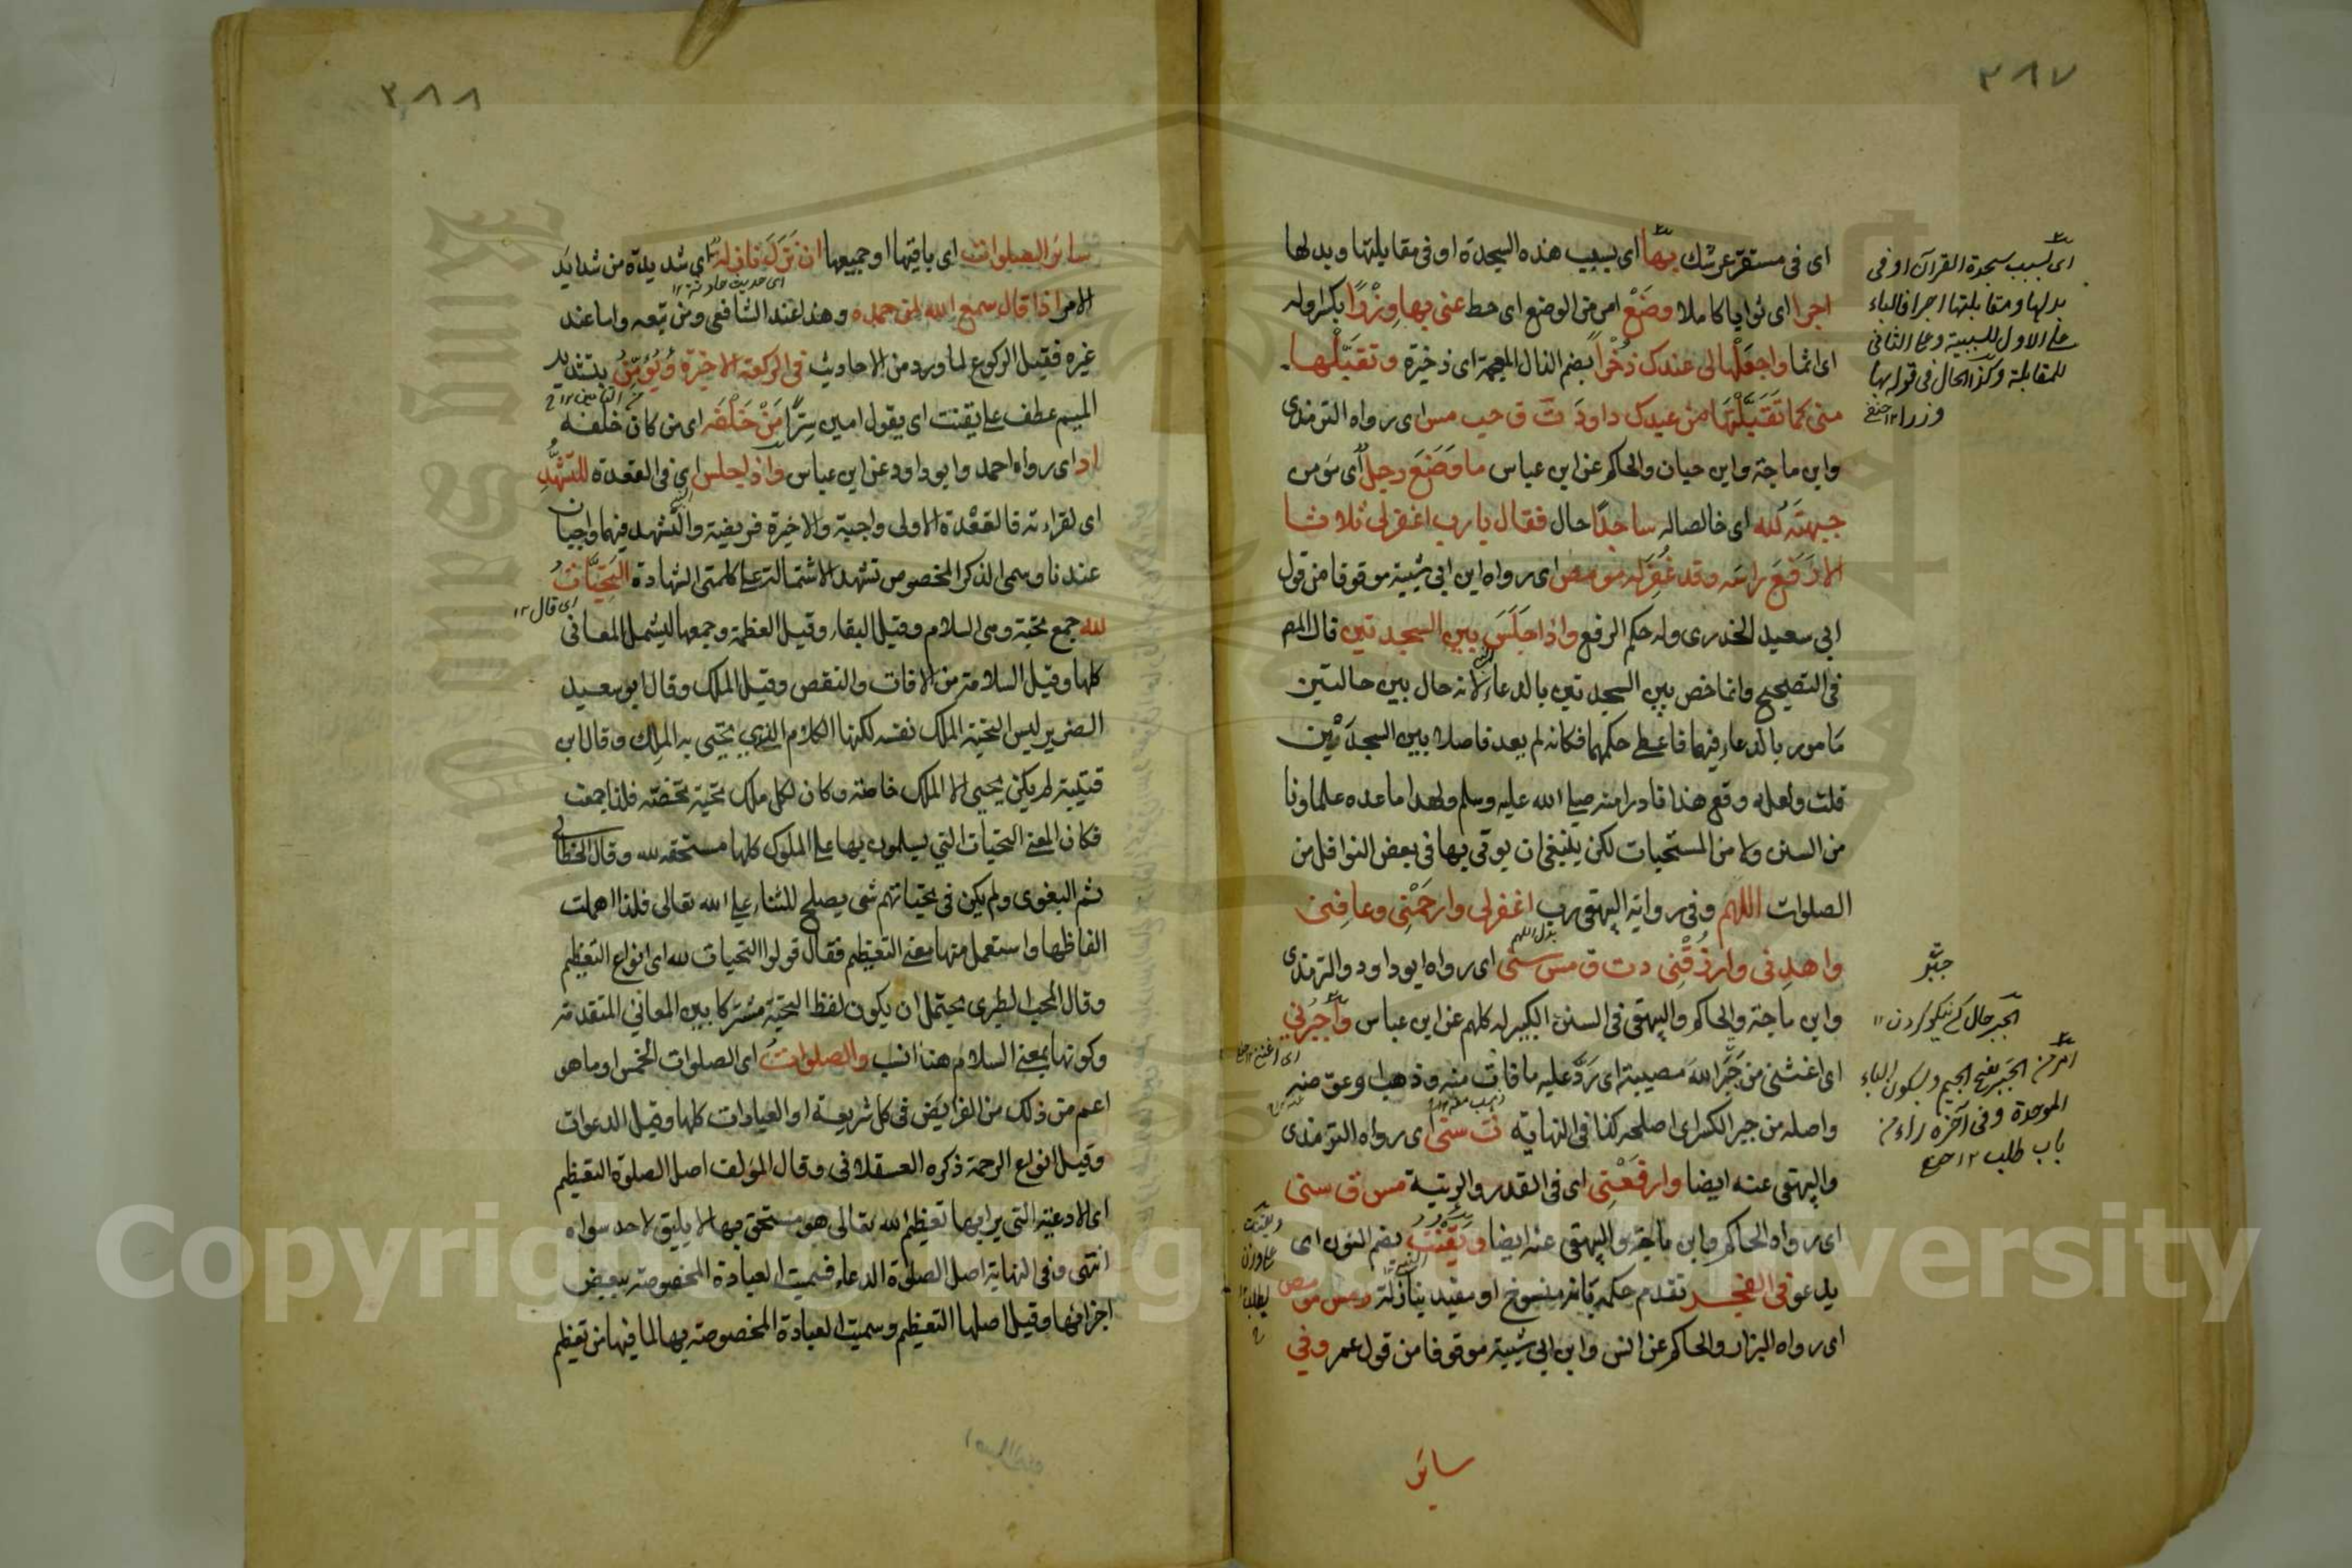 ٣٨٧
اى فى مستقر عرشك بها اى بسبب هذه السجدة او فى مقابلتها وبدلها
اجرا اى ثوابا كاملا وضَعْ امر من الوضع اى حط عنى بها وِزْرًا بكسر اوله
اى اثما واجعَلْها لى عندك ذُخْرًا بضم الذال المعجمة اى ذخيرة وتقبَّلْها
منى كما تَقَبَّلْتَهَا من عبدك داودَ ت ق حب مس اى رواه الترمذى
وابن ماجة وابن حبان والحاكم عن ابن عباس ما وَضَعَ رجل اى من
جبهتَه لله اى خالصا له ساجدًا حال فقال يا رب اغفر لى ثلاثا
الا رَفَعَ راسَه وقد غُفِرَ له مو مص اى رواه ابن ابى شيبة موقوفا من قول
ابى سعيد الخدرى وله حكم الرفع واذا جَلَسَ بين السجدتين قال المص
فى التصحيح وانما خص بين السجدتين بالدعاء لانه حال بين حالتين
مامور بالدعاء فيهما فاعطى حكمهما فكانه لم يعد فاصلا بين السجدتين
قلت ولعله وقع هذا نادرا منه صلى الله عليه وسلم ولهذا ما عده علماونا
من السنن ولا من المستحبات لكن ينبغى ان يوتى بها فى بعض النوافل من
الصلوات اللهم وفى رواية البيهقى رب اغفر لى وارحَمْنِى وعافِنى
واهدِنى وارزُقْنِى د ت ق مس سنى اى رواه ابو داود والترمذى
وابن ماجة والحاكم والبيهقى فى السنن الكبير له كلهم عن ابن عباس واجْبُرْنِى
اى اغننى من جَبَرَ الله مصيبته اى رَدَّ عليه ما فات منه وذهب او عوضه
واصله من جبر الكسر اى اصلحه كذا فى النهاية ت سنى اى رواه الترمذى
والبيهقى عنه ايضا وارفَعْنِى اى فى القدر والرتبة مس ق سنى
اى رواه الحاكم وابن ماجة والبيهقى عنه ايضا ويَقْنُتُ بضم النون اى
يدعو فى الفجر تقدم حكمه بانه منسوخ او مقيد بنازلة ر مس مو مص
اى رواه البزار والحاكم عن انس وابن ابى شيبة موقوفا من قول عمر وفى
سائر
اى بسبب سجدة القرآن او فى
بدلها ومقابلتها اجرا فالباء
على الاول للسببية وعلى الثانى
للمقابلة وكذا الحال فى قوله بها
وزرا ١٢ حنفى
بدل اللهم
جبر
الجبر حال كسى نيكو كردن ١٢
امر من الجَبر بفتح الجيم وسكون الباء
الموحدة وفى آخره راء من
باب طلب ١٢
ويقنت
على وزن
يطلب ١٢
٣٨٨
سائر الصلوات اى باقيها او جميعها ان نَزَلَ نازلة اى شديدة من شدايد
الامر اذا قال سمع الله لمن حمده وهذا عند الشافعى ومن تبعه واما عند
غيره فقبل الركوع لما ورد من الاحاديث فى الركعة الاخيرة ويُؤَمِّنُ بتشديد
الميم عطف على يقنت اى يقول امين سرًا مَنْ خَلْفَه اى من كان خلفه
ا د اى رواه احمد وابو داود عن ابن عباس واذا جلس اى فى القعدة للتشهُّدِ
اى لقراءته فالقعدة الاولى واجبة والاخيرة فريضة والتشهد فيهما واجبان
عندنا وسمى الذكر المخصوص تشهدا لاشتماله على كلمتى الشهادة التحِيَّاتُ
لله جمع تحية ومعنى السلام وقيل البقاء وقيل العظمة وجمعها ليشمل المعانى
كلها وقيل السلامة من الافات والنقص وقيل الملك وقال ابو سعيد
الضرير ليس التحية الملك نفسه لكنها الكلام الذى يحيى به الملِك وقال ابن
قتيبة لم يكن يحيى الا الملك خاصة وكان لكل ملك تحية تخصه فلذا جمعت
فكان المعنى التحيات التى يسلمون بها على الملوك كلها مستحقه لله وقال الخطابى
ثم البغوى ولم يكن فى تحياتهم شى يصلح للثناء على الله تعالى فلذا اهملت
الفاظها واستعمل منها معنى التعظيم فقال قولوا التحيات لله اى انواع التعظيم
وقال المحب الطبرى يحتمل ان يكون لفظ التحية مشتركا بين المعانى المتقدمة
وكونها بمعنى السلام هنا انسب والصلواتُ اى الصلوات الخمس او ما هو
اعم من ذلك من الفرايض فى كل شريعة او العبادات كلها وقيل الدعوات
وقيل انواع الرحمة ذكره العسقلانى وقال المؤلف اصل الصلوة التعظيم
اى الادعية التى يراد بها تعظيم الله تعالى هو مستحق بها لا يليق لاحد سواه
انتهى وفى النهاية اصل الصلوة الدعاء فسميت العبادة المخصوصة ببعض
اجزائها وقيل اصلها التعظيم وسميت العبادة المخصوصة بها لما فيها من تعظيم
اى قال ١٢
Copyright © King Saud University
King Saud University